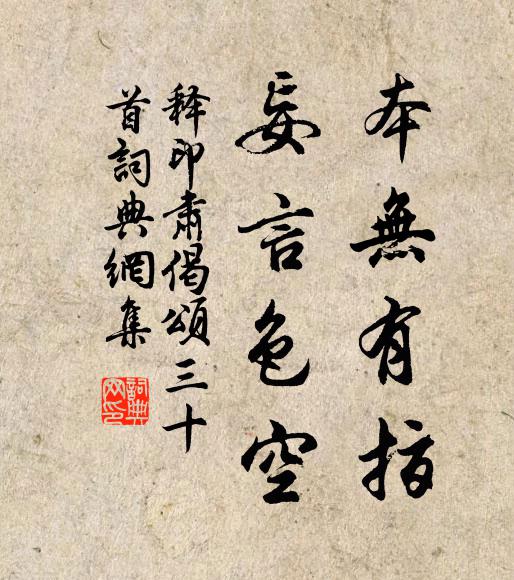 本無有指
妄言色空
释印肅偈頌三十
首詞典網集
詞典網印